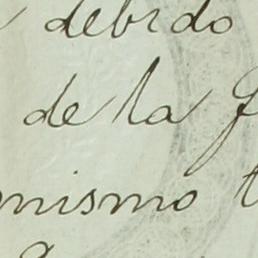 debido
de la
mismo